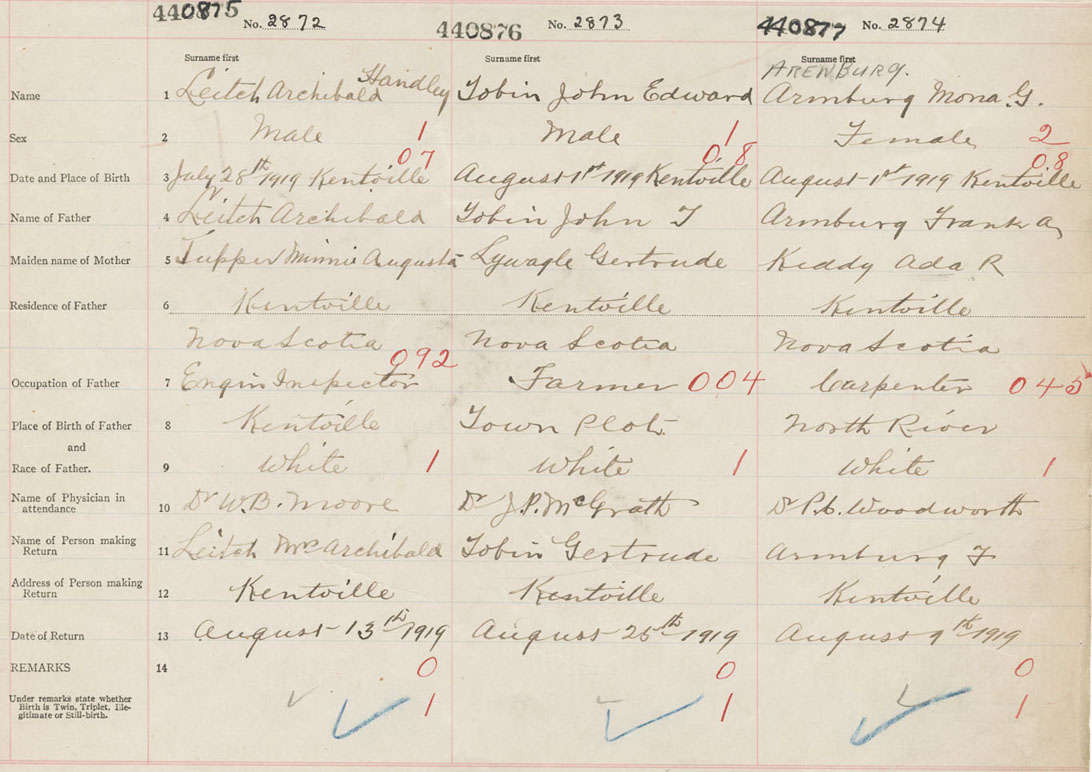 440875 No. 2872 440876 No. 2873 440877 No. 2874
Surname first Surname first Surname first
Handley ARENBURG.
Name 1 Leitch Archibald Tobin John Edward Armburg Mona G.
Sex 2 Male 1 Male 1 Female 2
07 08 08
Date and Place of Birth 3 July 28th 1919 Kentville August 1st 1919 Kentville August 1st 1919 Kentville
Name of Father 4 Leitch Archibald Tobin John T Armburg Frank A
Maiden name of Mother 5 Tupper Minnie Augusta Lywagle Gertrude Keddy Ada R
Residence of Father 6 Kentville Kentville Kentville
Nova Scotia Nova Scotia Nova Scotia
092
Occupation of Father 7 Engin Inspector Farmer 004 Carpenter 045
Place of Birth of Father 8 Kentville Town Plot North River
and
Race of Father. 9 White 1 White 1 White 1
Name of Physician in
attendance 10 Dr W.B. Moore Dr J.P. McGrath Dr P.C. Woodworth
Name of Person making
Return 11 Leitch Mrs Archibald Tobin Gertrude Armburg F
Address of Person making
Return 12 Kentville Kentville Kentville
Date of Return 13 August 13th 1919 August 25th 1919 August 9th 1919
REMARKS 14 0 0 0
Under remarks state whether
Birth is Twin, Triplet, Ille-
gitimate or Still-birth. 1 1 1